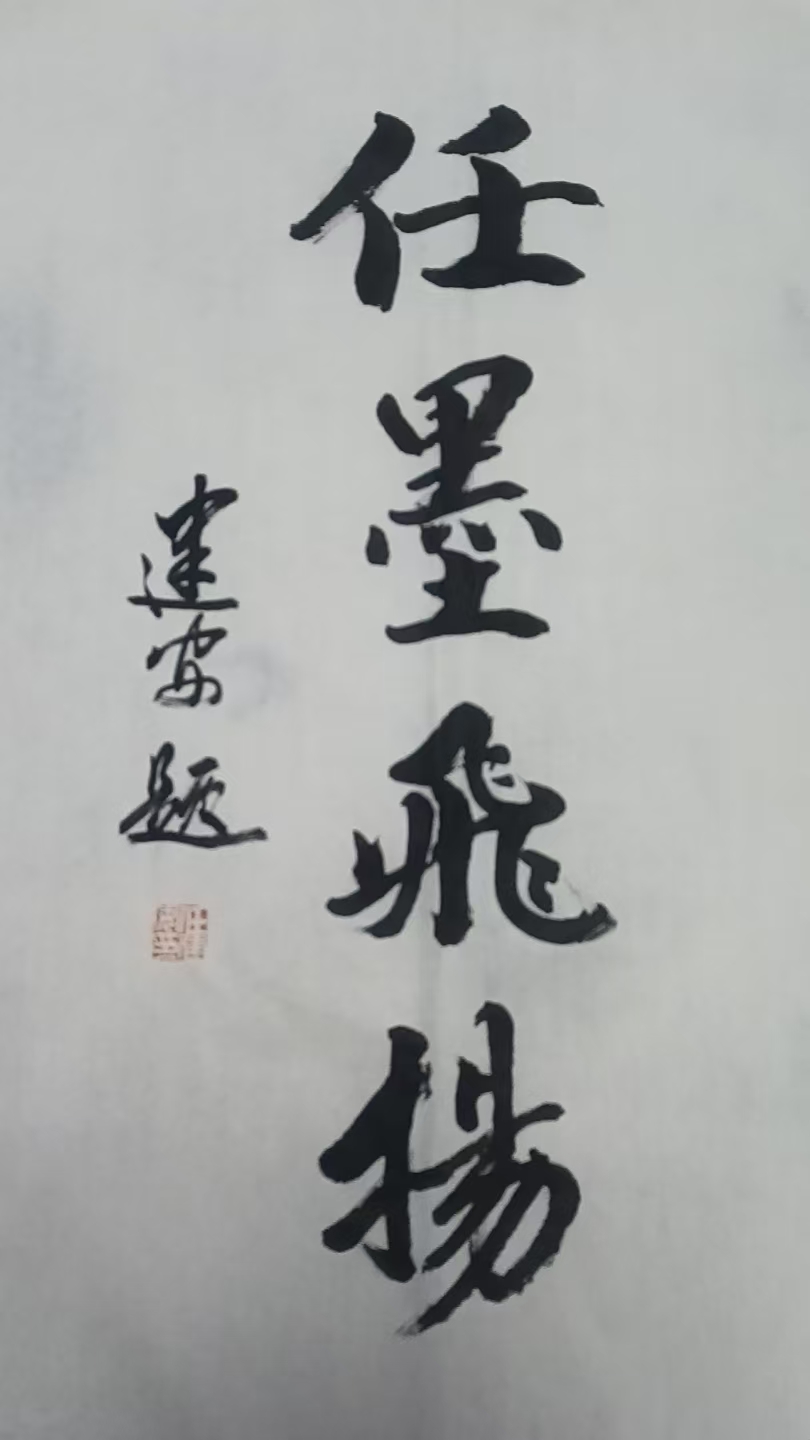 任墨飛揚
建安題